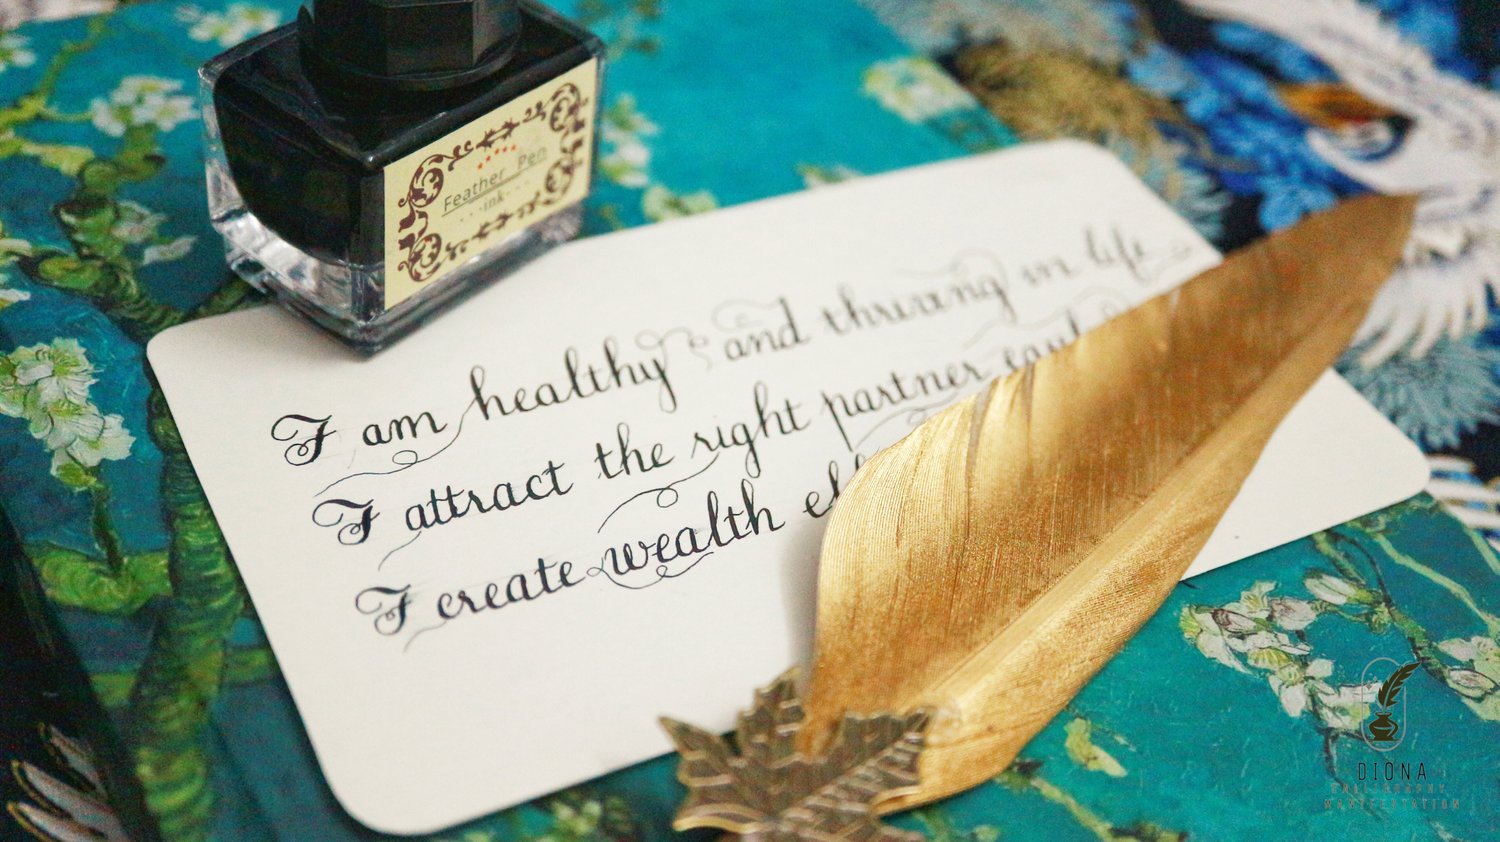 Feather Pen
ink
I am healthy and thriving in life
I attract the right partner
I create wealth
DIONA
CALLIGRAPHY
MANIFESTATION